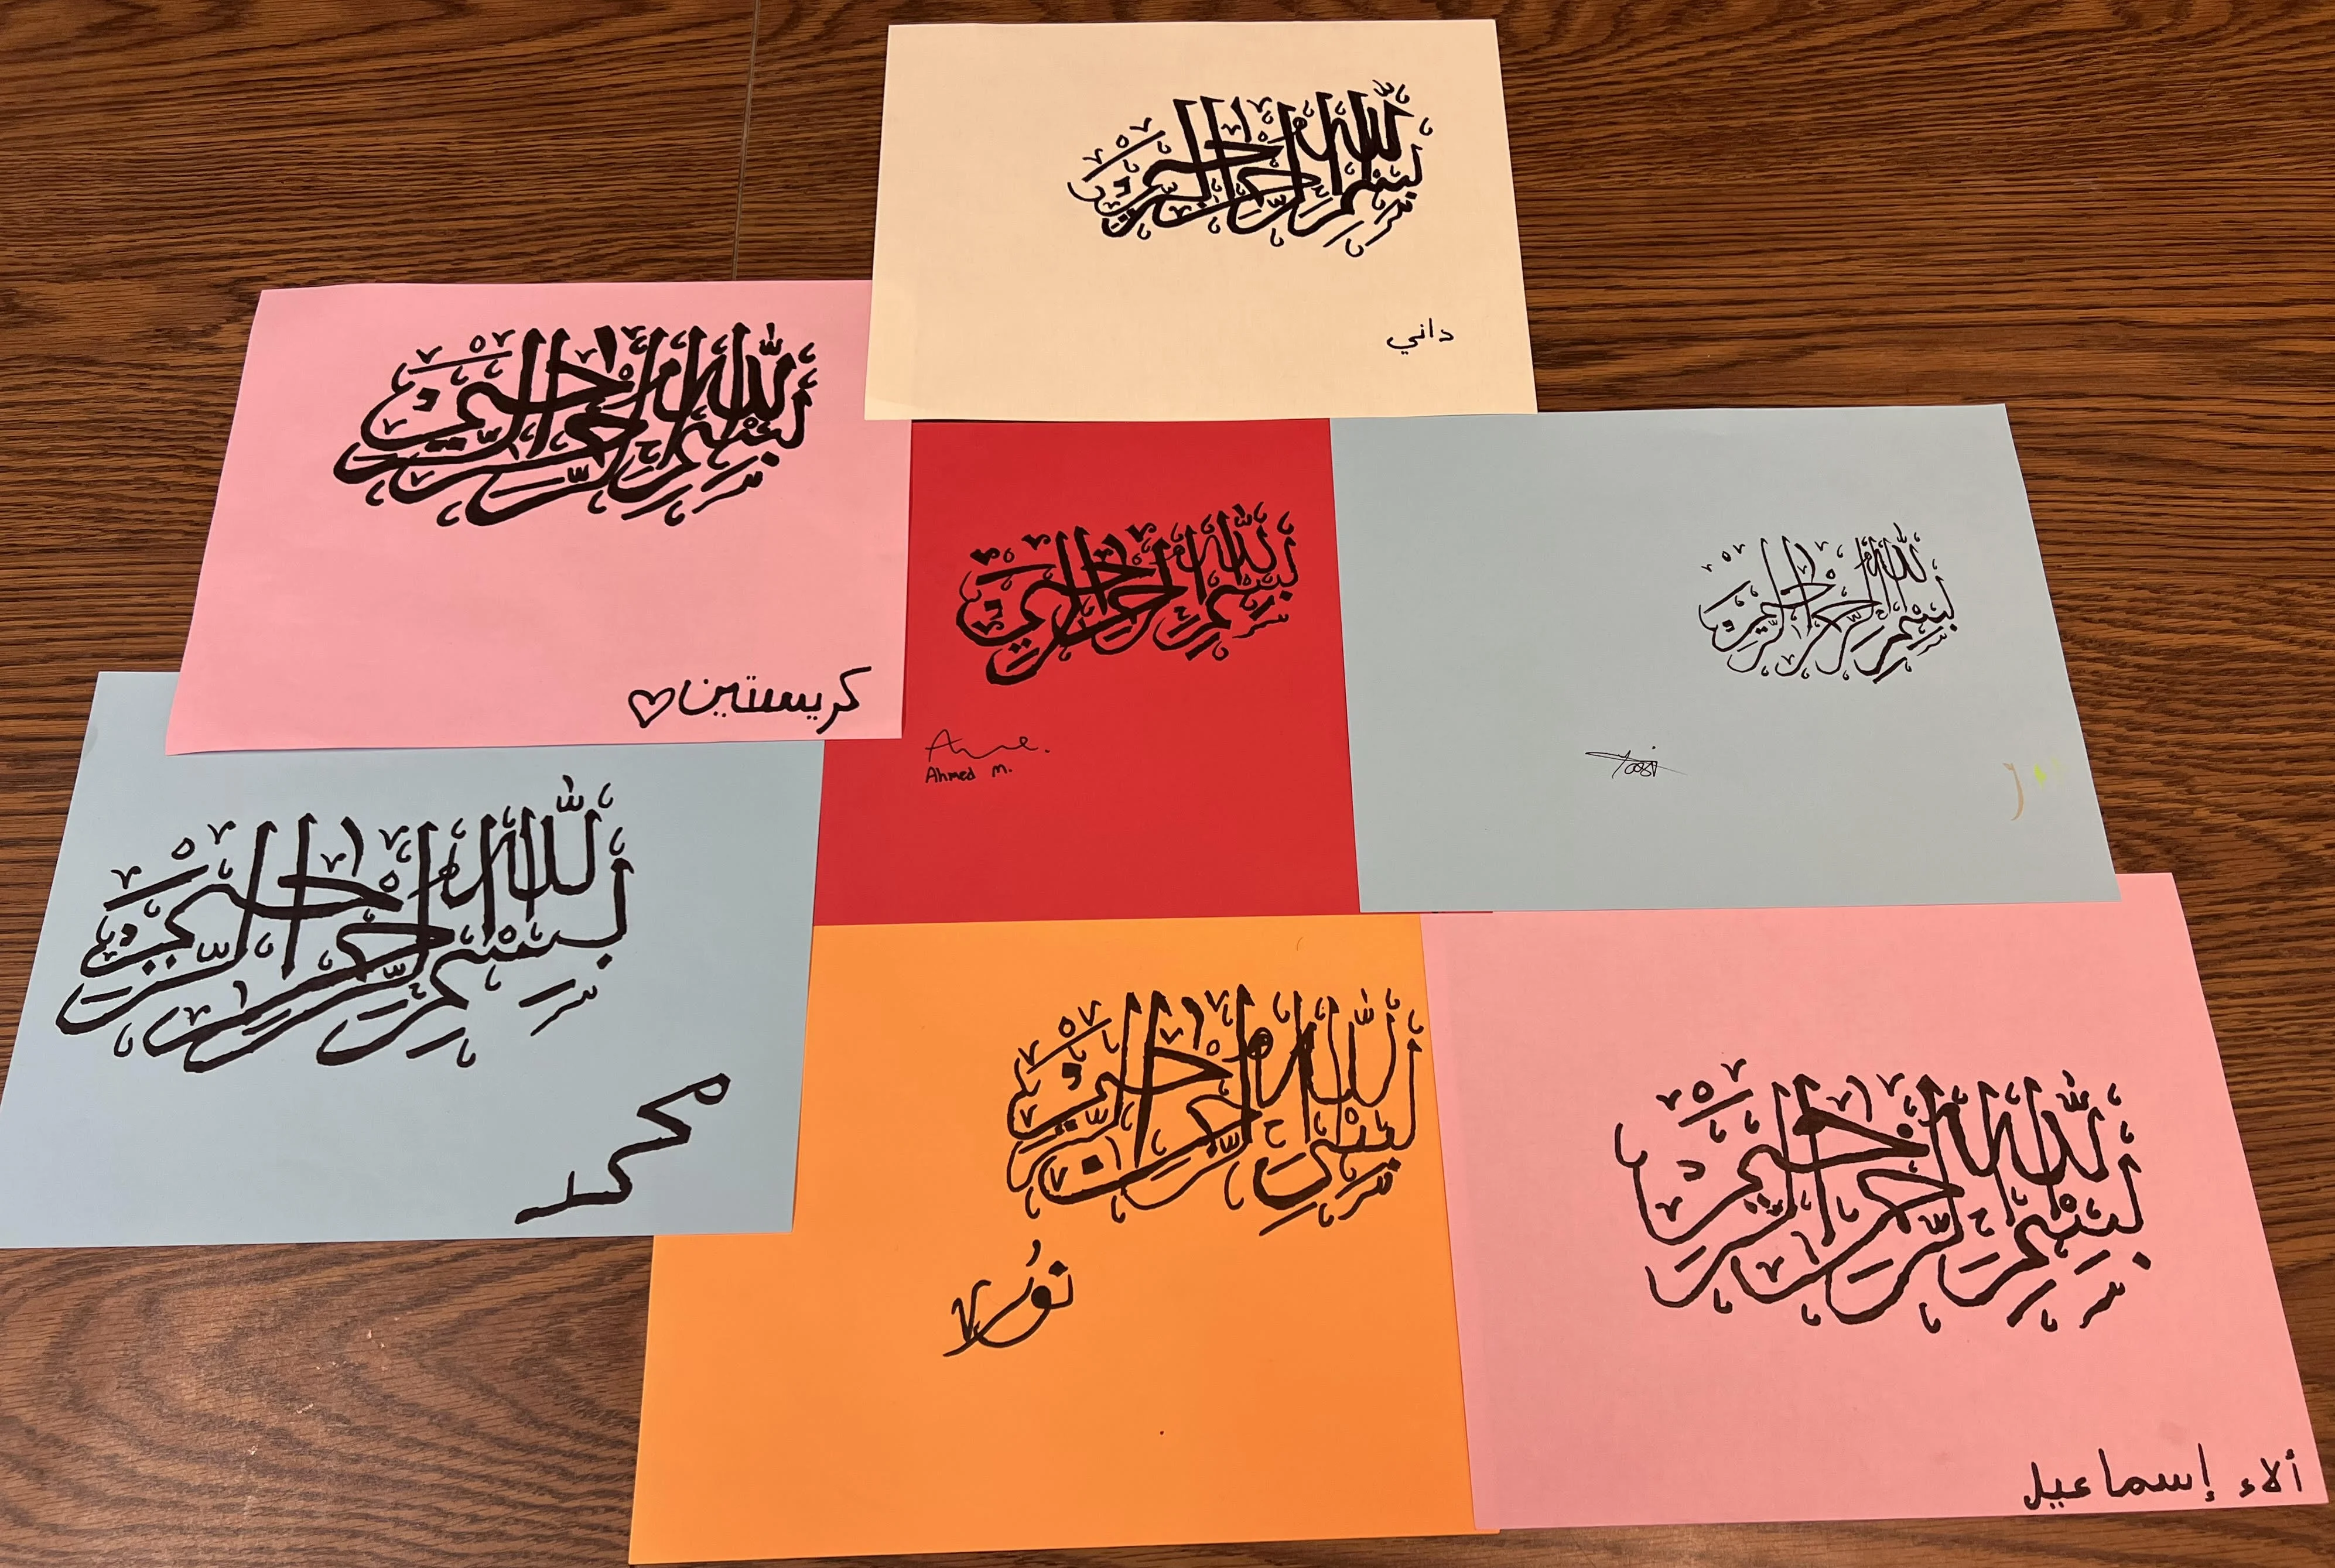 بسم الله الرحمن الرحيم
داني
بسم الله الرحمن الرحيم
كريستين
بسم الله الرحمن الرحيم
Ahmed M.
بسم الله الرحمن الرحيم
بسم الله الرحمن الرحيم
محمد
بسم الله الرحمن الرحيم
نور
بسم الله الرحمن الرحيم
ألاء إسماعيل